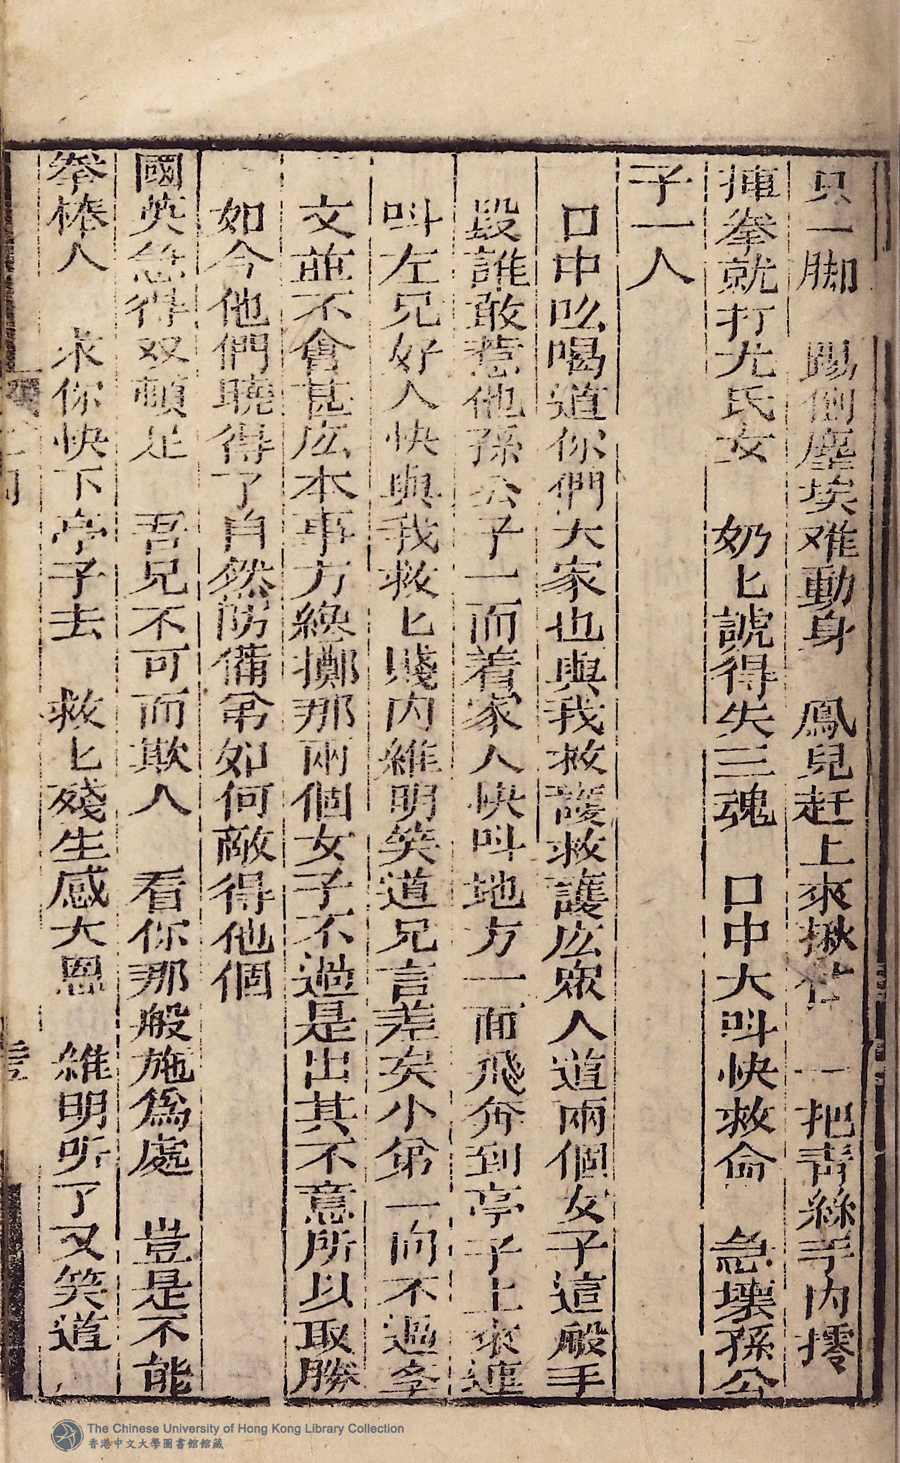 只一脚　踢倒塵埃难動身　鳳兒赶上來揪住　一把青絲手內撏
揮拳就打尤氏女　奶匕諕得失三魂　口中大叫快救命　急壞孫公
子一人
口中吆喝道你們大家也與我救護救護庅眾人道兩個女子這般手
叚誰敢惹他孫公子一而着家人快叫地方一面飛奔到亭子上來連
叫左兄好人快與我救匕賤內維明笑道兄言差矣小弟一向不過李
文並不會甚庅本事方纔擲那兩個女子不過是出其不意所以取勝
如今他們曉得了自然防備弟如何敵得他個
國英急得双頓足　吾兄不可而欺人　看你那般施爲處　豈是不能
拳棒人　求你快下亭子去　救匕殘生感大恩　維明听了又笑道
The Chinese University of Hong Kong Library Collection
香港中文大學圖書館館藏